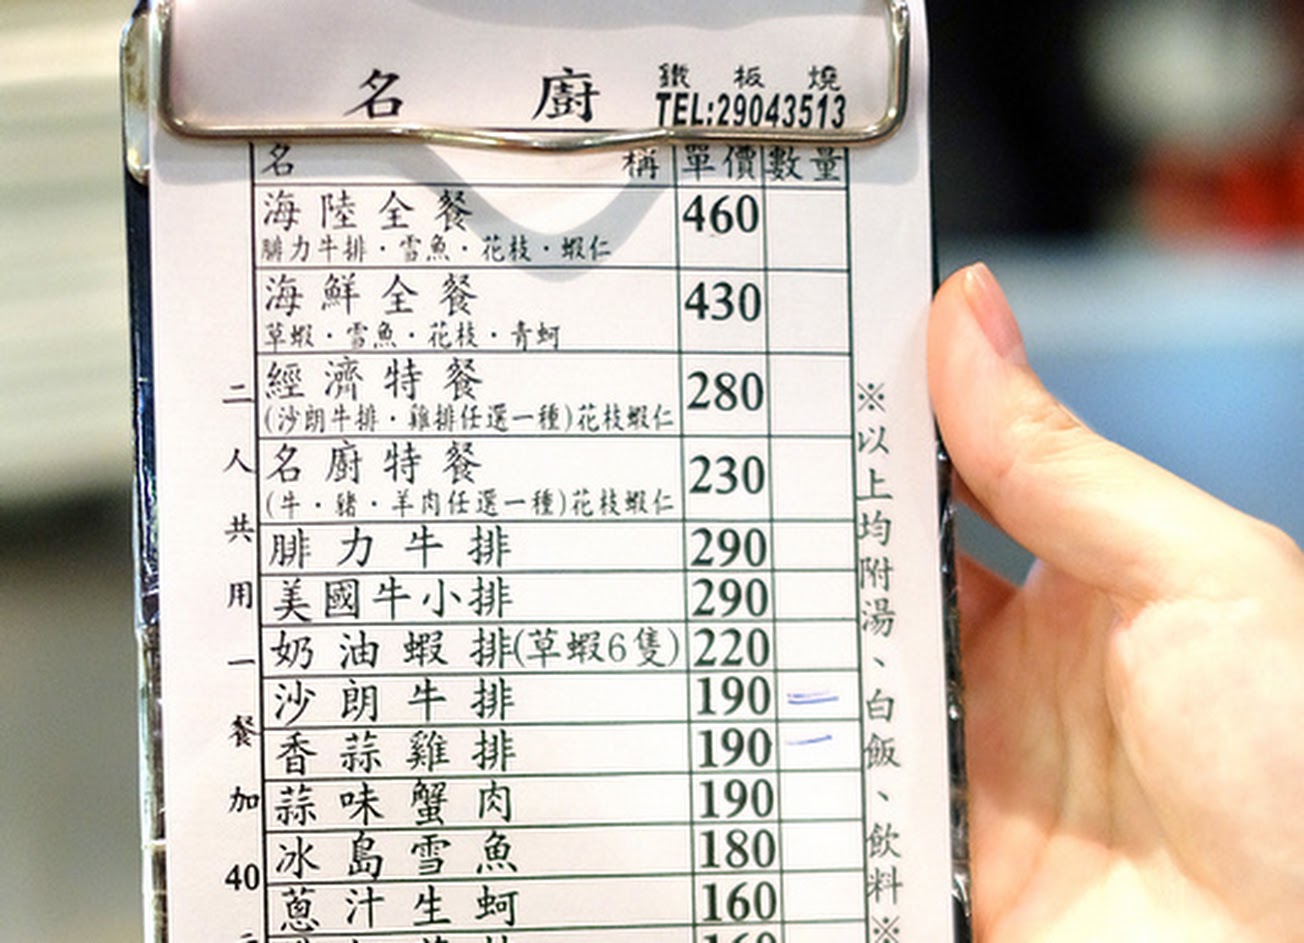 名廚 鐵板燒
TEL:29043513
名稱 單價 數量
海陸全餐 460
腓力牛排·雪魚·花枝·蝦仁
海鮮全餐 430
草蝦·雪魚·花枝·青蚵
經濟特餐 280
(沙朗牛排·雞排任選一種)花枝蝦仁
名廚特餐 230
(牛·豬·羊肉任選一種)花枝蝦仁
腓力牛排 290
美國牛小排 290
奶油蝦排(草蝦6隻) 220
沙朗牛排 190 二
香蒜雞排 190 一
蒜味蟹肉 190
冰島雪魚 180
蔥汁生蚵 160
160
二人共用一餐加40
※以上均附湯、白飯、飲料※